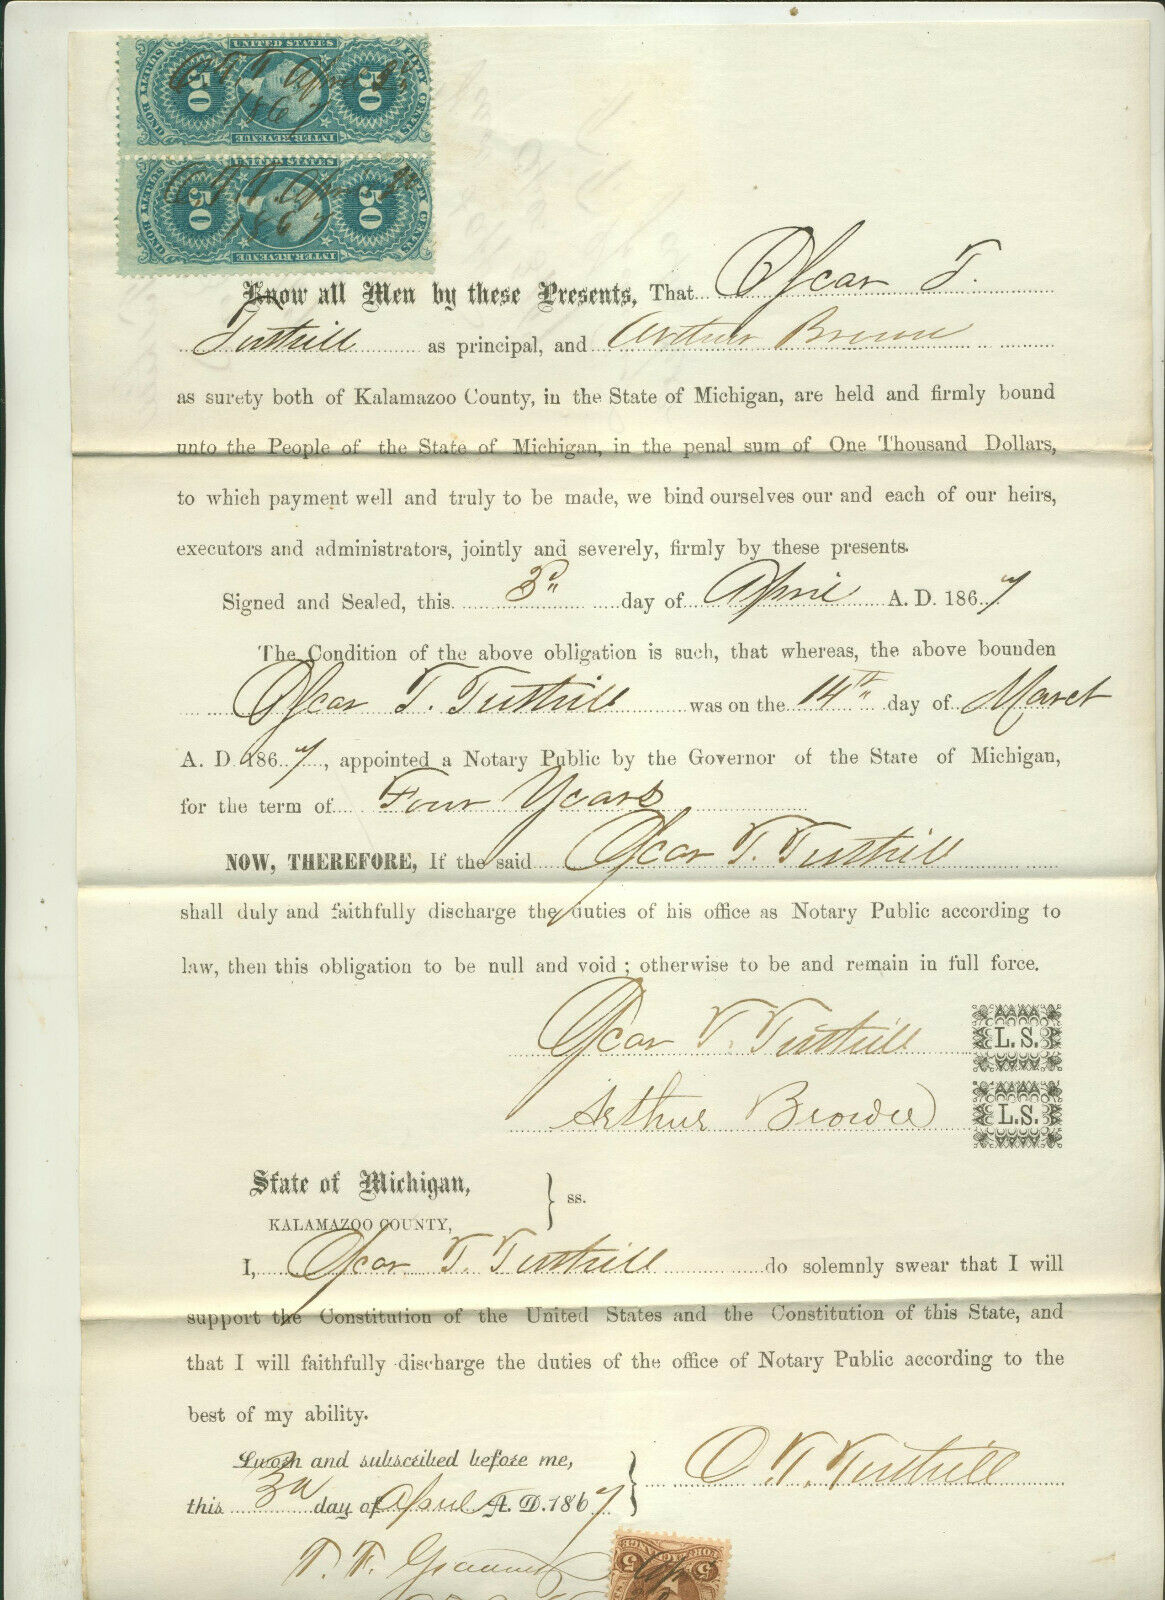 UNITED STATES
SURETY BOND
50
50
FIFTY CENTS
INTER. REVENUE
April 3d
1867
UNITED STATES
SURETY BOND
50
50
FIFTY CENTS
INTER. REVENUE
April
1867
Know all Men by these Presents, That Oscar T.
Tuthill as principal, and Arthur Brown
as surety both of Kalamazoo County, in the State of Michigan, are held and firmly bound
unto the People of the State of Michigan, in the penal sum of One Thousand Dollars,
to which payment well and truly to be made, we bind ourselves our and each of our heirs,
executors and administrators, jointly and severely, firmly by these presents.
Signed and Sealed, this 3d day of April A. D. 1867
The Condition of the above obligation is such, that whereas, the above bounden
Oscar T. Tuthill was on the 14th day of March
A. D. 1867, appointed a Notary Public by the Governor of the State of Michigan,
for the term of Four Years
NOW, THEREFORE, If the said Oscar T. Tuthill
shall duly and faithfully discharge the duties of his office as Notary Public according to
law, then this obligation to be null and void ; otherwise to be and remain in full force.
Oscar T. Tuthill L. S.
Arthur Brown L. S.
State of Michigan, } ss.
KALAMAZOO COUNTY,
I, Oscar T. Tuthill do solemnly swear that I will
support the Constitution of the United States and the Constitution of this State, and
that I will faithfully discharge the duties of the office of Notary Public according to the
best of my ability.
Sworn and subscribed before me, } O. T. Tuthill
this 3d day of April A. D. 1867
5
5